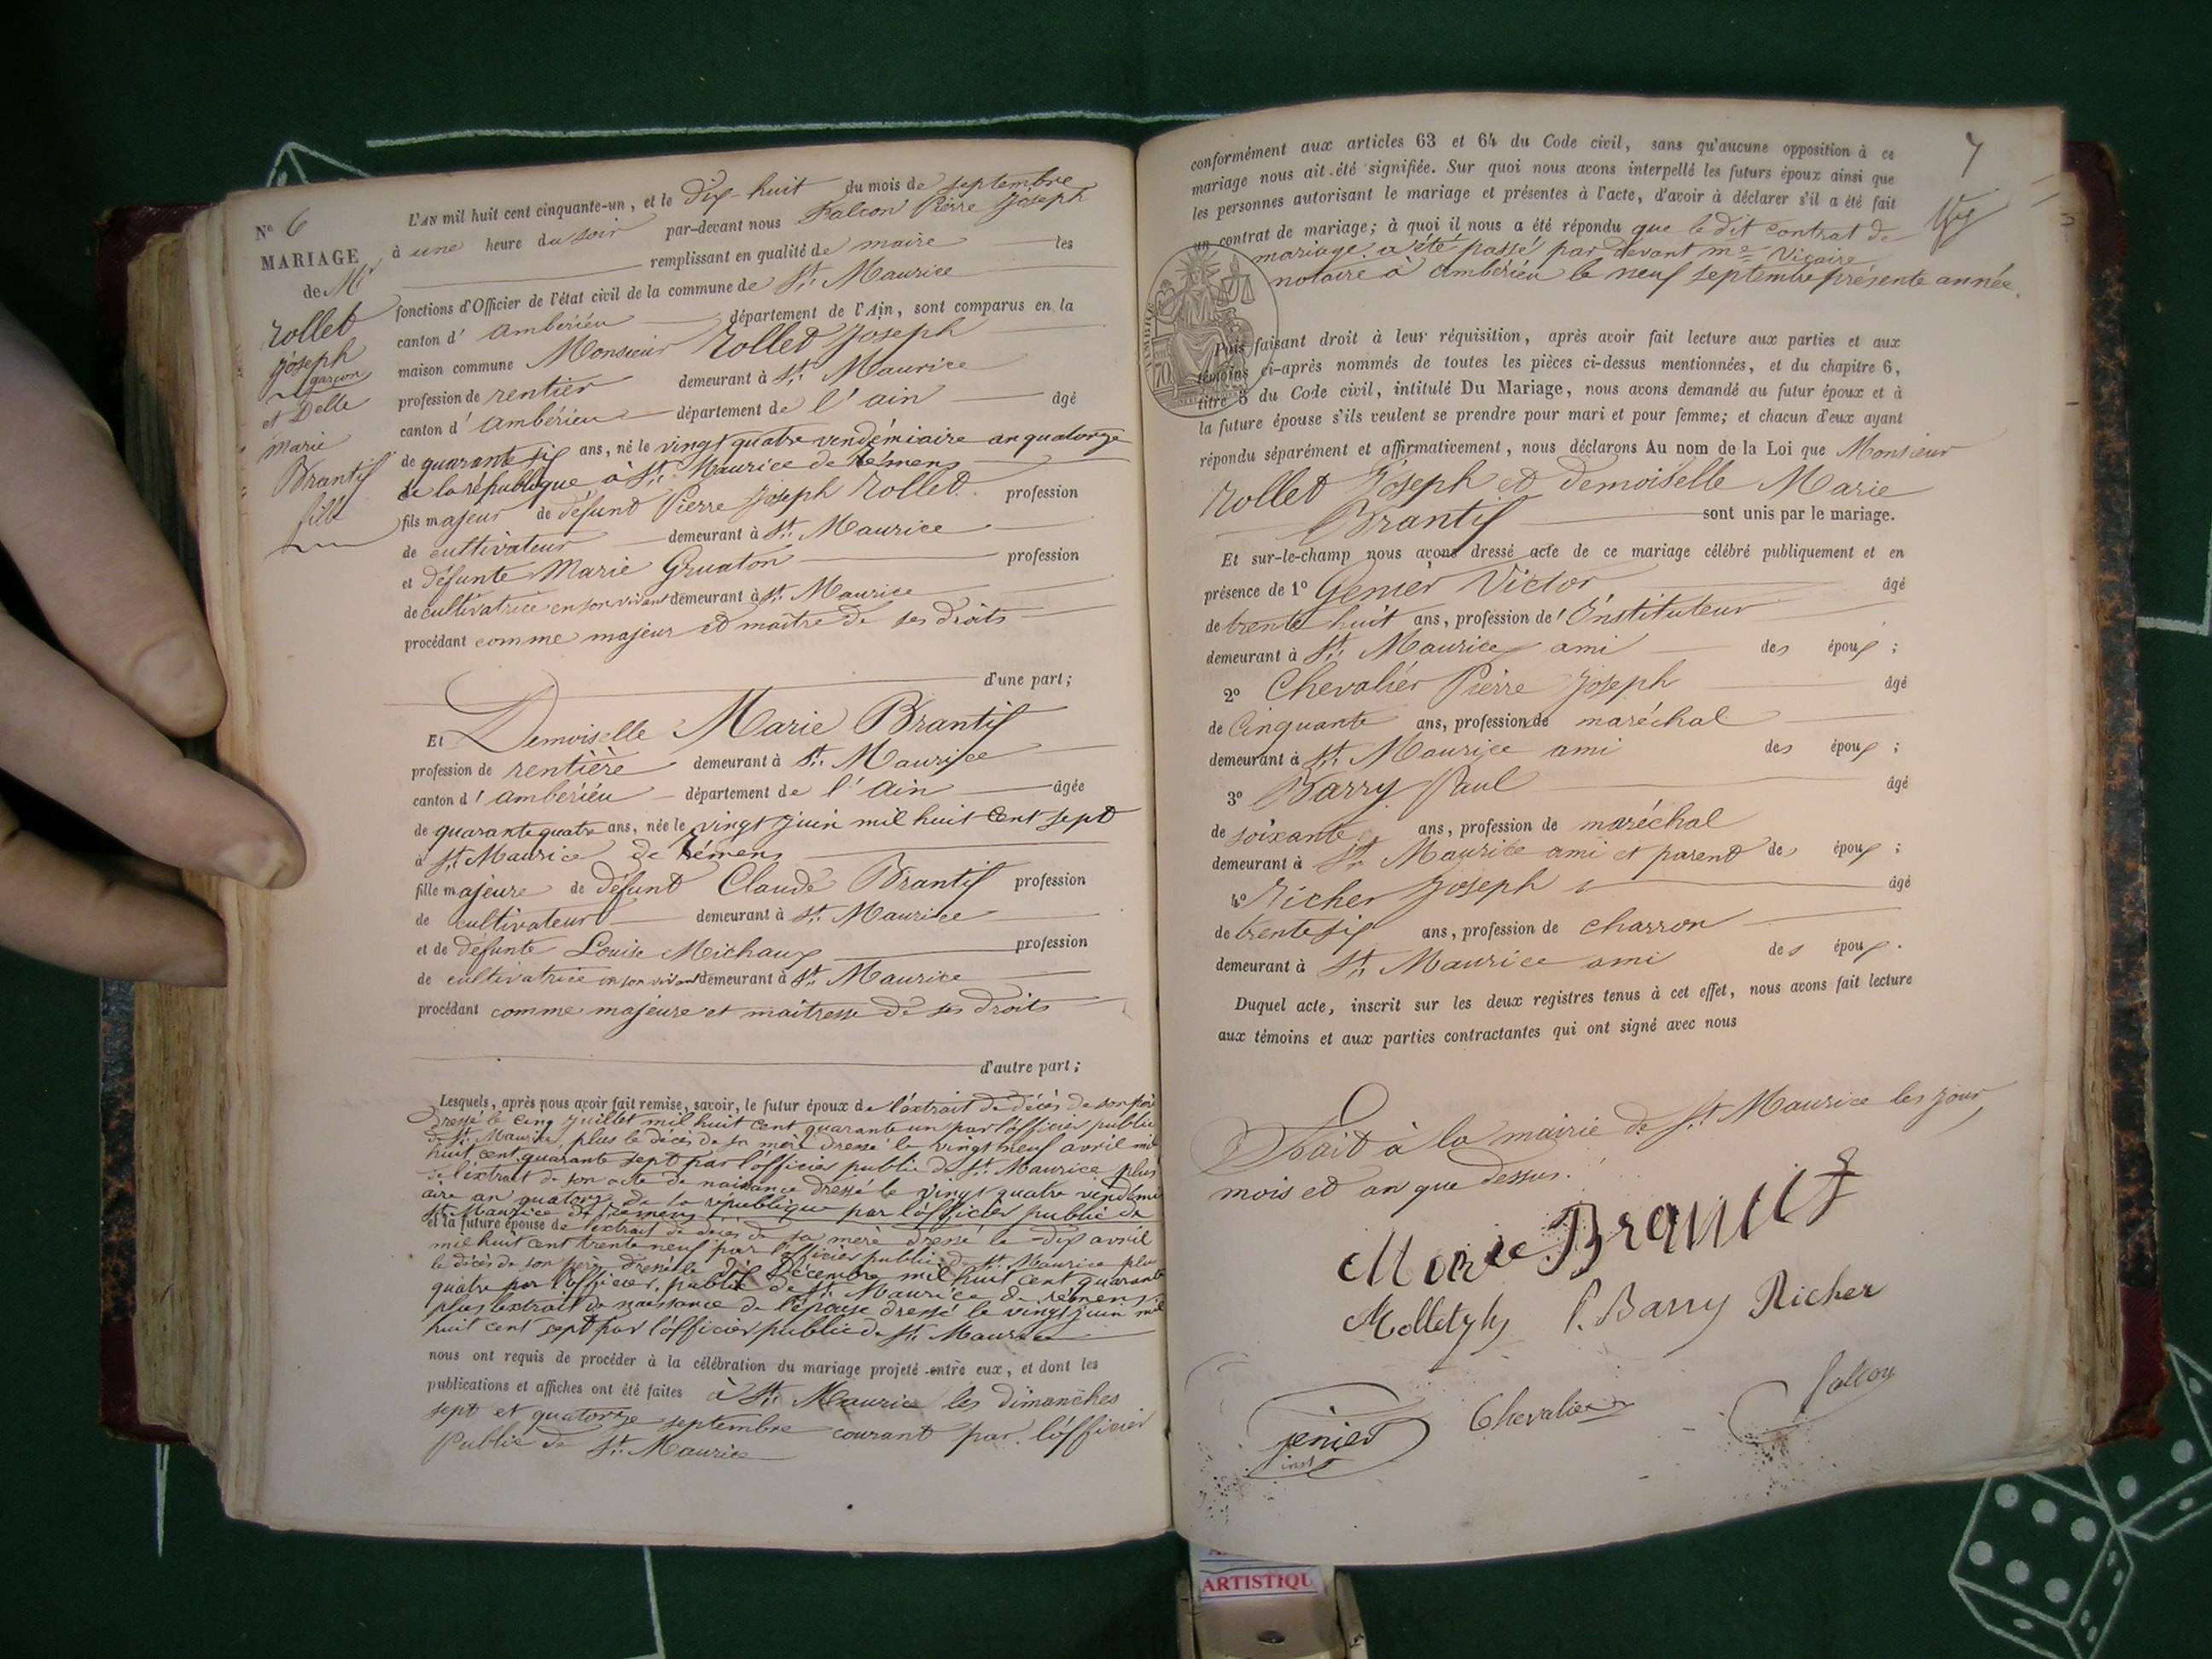 N° 6
MARIAGE
de Mr
Rollet
Joseph
garçon
et Delle
Marie
Brantif
fille
L'AN mil huit cent cinquante-un, et le Dix-huit du mois de septembre
à une heure du soir par-devant nous Falcon Pierre Joseph
remplissant en qualité de maire les
fonctions d'Officier de l'état civil de la commune de St. Maurice
canton d' ambérieu département de l'Ain, sont comparus en la
maison commune Monsieur Rollet Joseph
profession de rentier demeurant à St. Maurice
canton d' ambérieu département de l'ain âgé
de quarante six ans, né le vingt quatre vendémiaire an quatorze
de la république à St. Maurice de Rémens
fils majeur de défunt Pierre Joseph Rollet profession
de cultivateur demeurant à St. Maurice
et défunte Marie Gruaton profession
de cultivatrice en son vivant demeurant à St. Maurice
procédant comme majeur et maître de ses droits
d'une part;
Et Demoiselle Marie Brantif
profession de rentière demeurant à St. Maurice
canton d' ambérieu département de l'ain âgée
de quarante quatre ans, née le vingt juin mil huit cent sept
à St. Maurice de Rémens
fille majeure de défunt Claude Brantif profession
de cultivateur demeurant à St. Maurice
et de défunte Louise Michaux profession
de cultivatrice en son vivant demeurant à St. Maurice
procédant comme majeure et maîtresse de ses droits
d'autre part;
Lesquels, après nous avoir fait remise, savoir, le futur époux de l'extrait de décès de son père
dressé le cinq juillet mil huit cent quarante un par l'officier public
de St. Maurice, plus le décès de sa mère dressé le vingt neuf avril mil
huit cent quarante sept par l'officier public de St. Maurice plus
de l'extrait de son acte de naissance dressé le vingt quatre vendémi
aire an quatorze de la république par l'officier public de
St. Maurice de Rémens
et la future épouse de l'extrait de décès de sa mère dressé le dix avril
mil huit cent trente neuf par l'officier public de St. Maurice plus
le décès de son père dressé le dix décembre mil huit cent quarante
quatre par l'officier public de St. Maurice de rémens
plus l'extrait de naissance de l'épouse dressé le vingt juin mil
huit cent sept par l'officier public de St. Maurice
nous ont requis de procéder à la célébration du mariage projeté entre eux, et dont les
publications et affiches ont été faites à St. Maurice les dimanches
sept et quatorze septembre courant par l'officier
public de St. Maurice
7
conformément aux articles 63 et 64 du Code civil, sans qu'aucune opposition à ce
mariage nous ait été signifiée. Sur quoi nous avons interpellé les futurs époux ainsi que
les personnes autorisant le mariage et présentes à l'acte, d'avoir à déclarer s'il a été fait
un contrat de mariage; à quoi il nous a été répondu que le dit contrat de
mariage a été passé par devant me Vicaire
notaire à ambérieu le neuf septembre présente année.
Puis faisant droit à leur réquisition, après avoir fait lecture aux parties et aux
témoins ci-après nommés de toutes les pièces ci-dessus mentionnées, et du chapitre 6,
titre 5 du Code civil, intitulé Du Mariage, nous avons demandé au futur époux et à
la future épouse s'ils veulent se prendre pour mari et pour femme; et chacun d'eux ayant
répondu séparément et affirmativement, nous déclarons Au nom de la Loi que Monsieur
Rollet Joseph et Demoiselle Marie
Brantif sont unis par le mariage.
Et sur-le-champ nous avons dressé acte de ce mariage célébré publiquement et en
présence de 1° Genier Victor âgé
de trente huit ans, profession de l'Instituteur
demeurant à St. Maurice ami des époux;
2° Chevalier Pierre Joseph âgé
de Cinquante ans, profession de maréchal
demeurant à St. Maurice ami des époux;
3° Barry Paul âgé
de soixante ans, profession de maréchal
demeurant à St. Maurice ami et parent des époux;
4° Richer Joseph âgé
de trente six ans, profession de charron
demeurant à St. Maurice ami des époux.
Duquel acte, inscrit sur les deux registres tenus à cet effet, nous avons fait lecture
aux témoins et aux parties contractantes qui ont signé avec nous
Fait à la mairie de St. Maurice les jour,
mois et an que dessus.
Marie Brantif
P. Barry Richer
Genier Chevalier Falcon
inst
ARTISTIQU